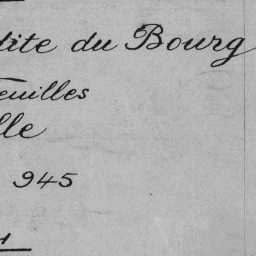 dite du Bourg
Feuilles
lle
945